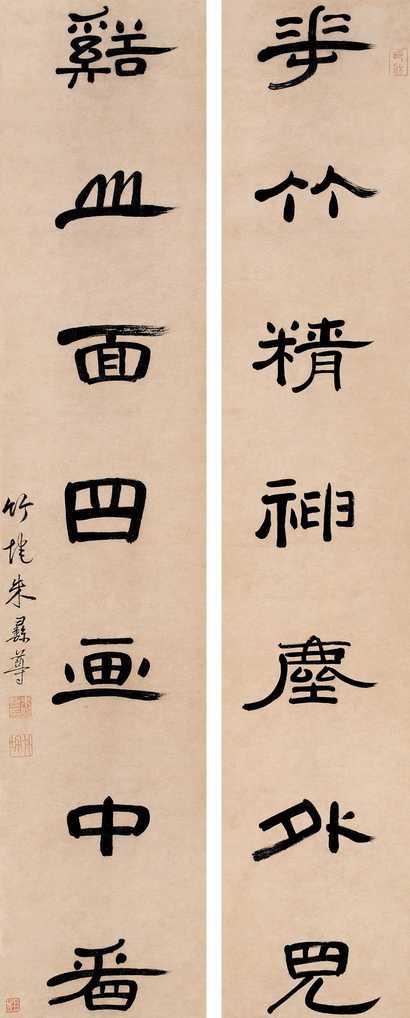 華竹精神塵外見
谿山面目画中看
竹垞朱彝尊